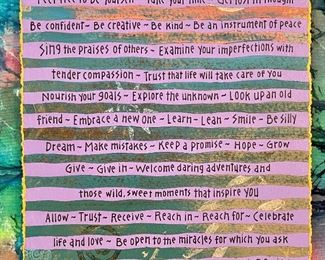 Feel free to be yourself ~ Take your time ~ Get lost in thought
Be confident ~ Be creative ~ Be kind ~ Be an instrument of peace
Sing the praises of others ~ Examine your imperfections with
tender compassion ~ Trust that life will take care of you
Nourish your goals ~ Explore the unknown ~ Look up an old
friend ~ Embrace a new one ~ Learn ~ Lean ~ Smile ~ Be silly
Dream ~ Make mistakes ~ Keep a promise ~ Hope ~ Grow
Give ~ Give in ~ Welcome daring adventures and
those wild, sweet moments that inspire you
Allow ~ Trust ~ Receive ~ Reach in ~ Reach for ~ Celebrate
life and love ~ Be open to the miracles for which you ask